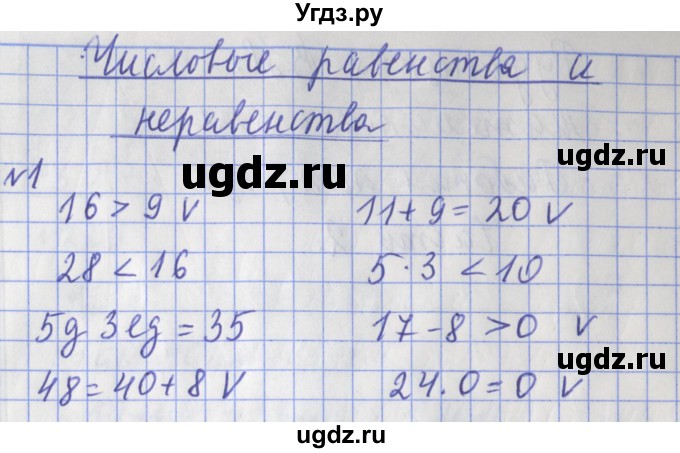 Угдз.ру
Числовые равенства и
неравенства
ugdz.ru
№1
16 > 9 v 11 + 9 = 20 v
28 < 16 5 · 3 < 10
5д 3ед = 35 17 - 8 > 0 v
ugdz.ru
48 = 40 + 8 v 24 · 0 = 0 v
ugdz.ru